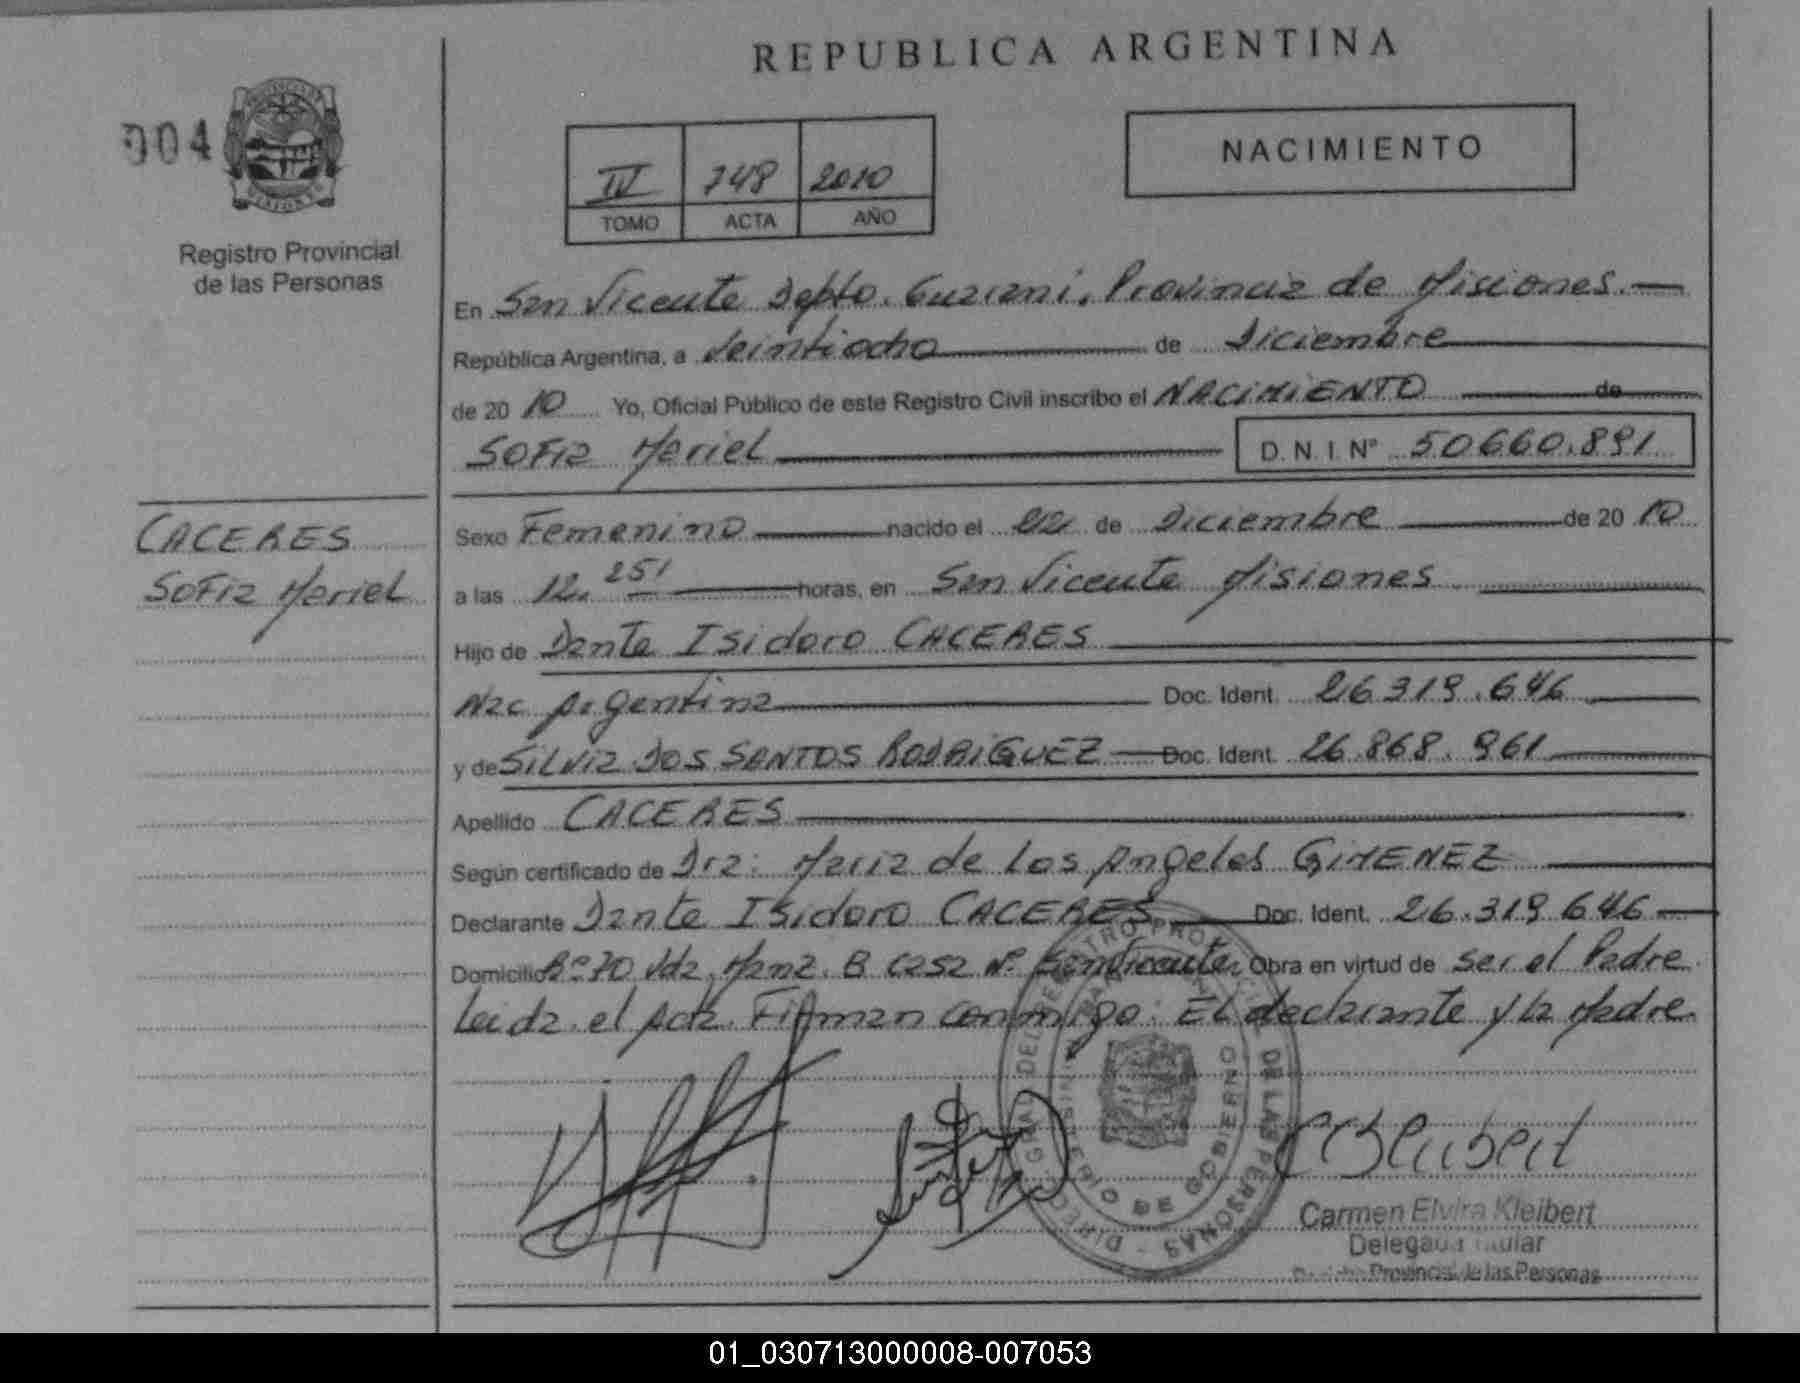 REPUBLICA ARGENTINA
004
Registro Provincial
de las Personas
748 2010
TOMO ACTA AÑO
NACIMIENTO
En San Vicente Depto. Guarani, Provincia de Misiones.
República Argentina, a Veintiocho de Diciembre
de 20 10 Yo, Oficial Público de este Registro Civil inscribo el NACIMIENTO de
SOFIA Mariel D.N.I. Nº 50660.891
CACERES
SOFIA Mariel
Sexo Femenino nacido el 22 de Diciembre de 20 10
a las 12. horas, en San Vicente Misiones
Hijo de Dante Isidoro CACERES
Nac Argentina Doc. Ident. 26.319.646
y de SILVIA DOS SANTOS RODRIGUEZ Doc. Ident. 26.868.961
Apellido CACERES
Según certificado de Dra: Maria de Los Angeles GIMENEZ
Declarante Dante Isidoro CACERES Doc. Ident. 26.319.646
Domicilio Bº 70 Vda, Manz. B casa Nº San Vicente Obra en virtud de ser el Padre
Leida el Acta Firman conmigo: El declarante y la Madre.
DIRECC. GRAL DEL REGISTRO PROVINCIAL DE LAS PERSONAS
MINISTERIO DE GOBIERNO
Carmen Elvira Kleibert
Delegada Titular
Provincial de las Personas
01_030713000008-007053